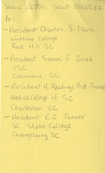 Same letter sent
to:
- President Charles S. Davis
Winthrop College
Rock Hill SC
- President Thomas F. Jones
USC
Columbia SC
- President
Medical College of SC
Charleston SC
- President E.C. Turner
SC State College
Orangeburg SC